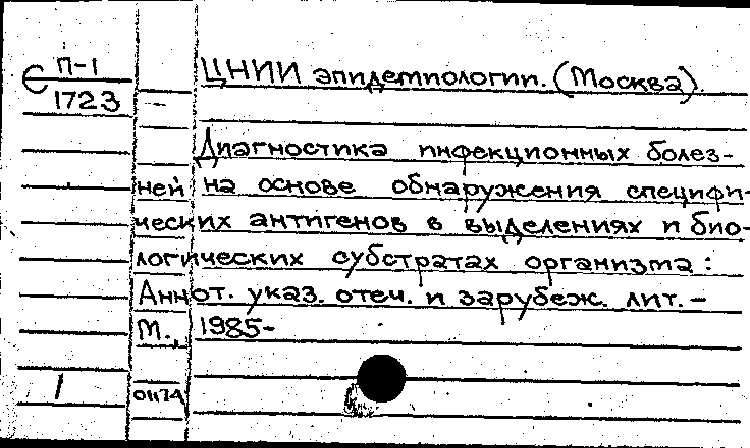 П-1
С
1723
ЦНИИ эпидемиологии. (Москва).
Диагностика инфекционных болез-
ней на основе обнаружения специфи-
ческих антигенов в выделениях и био-
логических субстратах организма:
Аннот. указ. отеч. и зарубеж. лит. -
М., 1985-
1